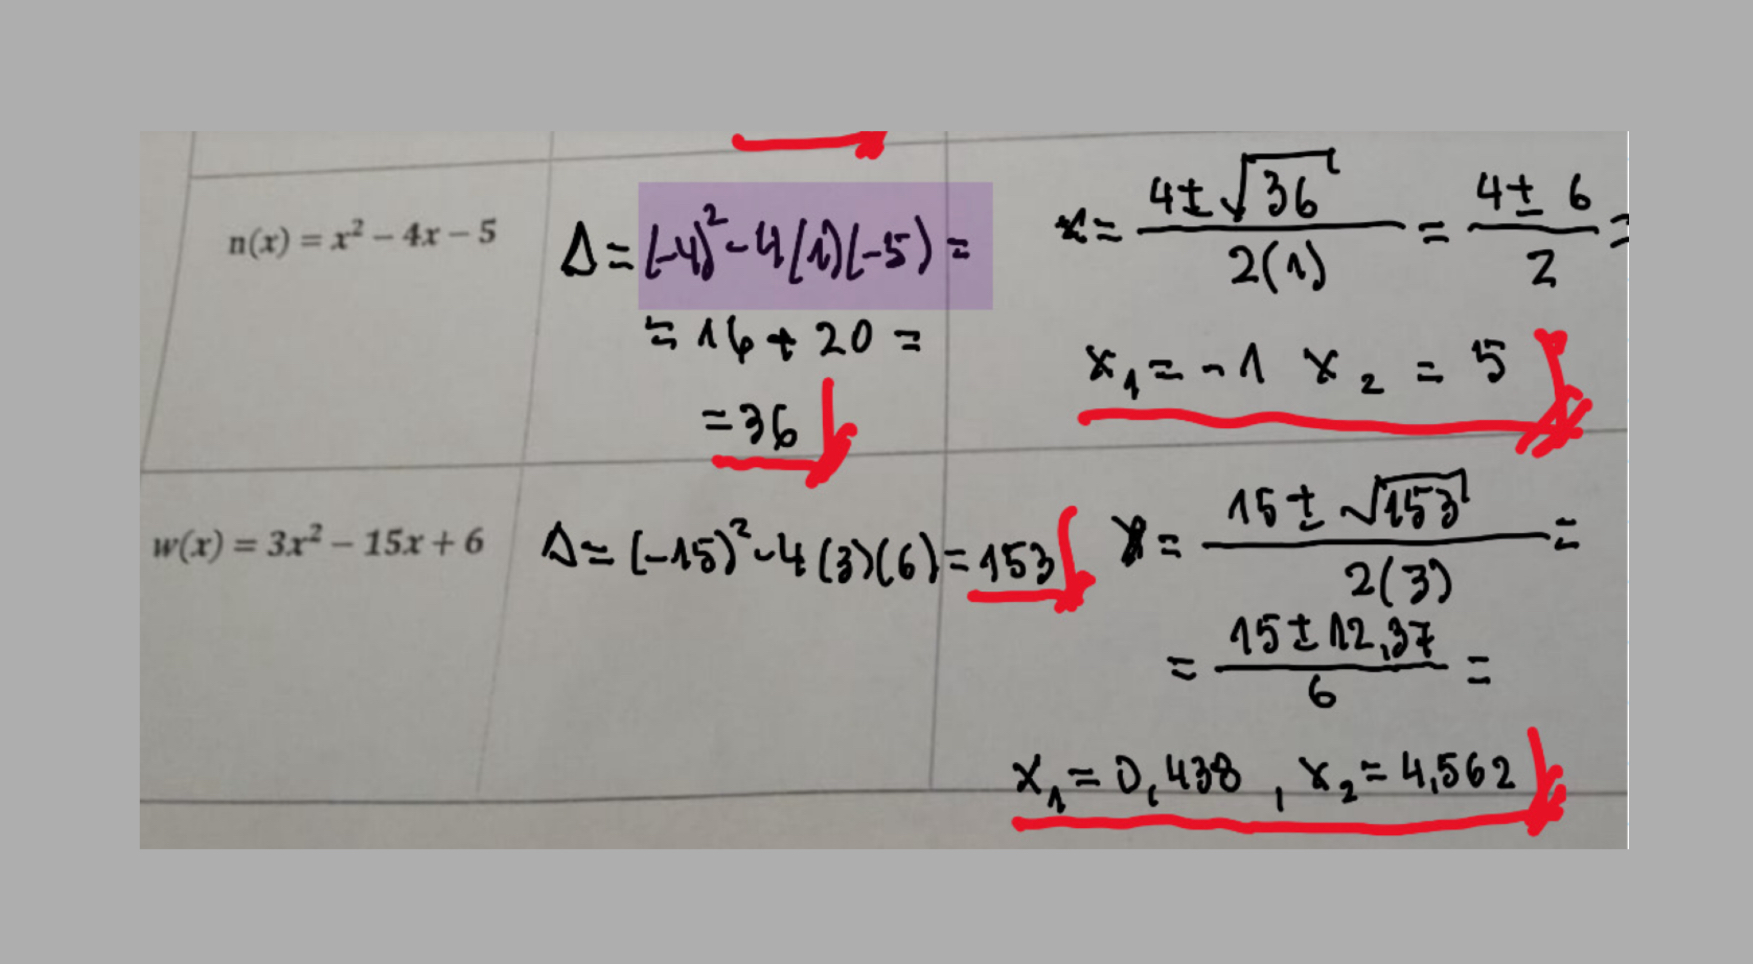 n(x) = x² − 4x − 5
Δ = (-4)² - 4(1)(-5) =
= 16 + 20 =
= 36
x = (4 ± √36) / 2(1) = (4 ± 6) / 2 =
x₁ = -1 x₂ = 5
w(x) = 3x² − 15x + 6
Δ = (-15)² - 4(3)(6) = 153
x = (15 ± √153) / 2(3) =
= (15 ± 12,37) / 6 =
x₁ = 0,438 , x₂ = 4,562